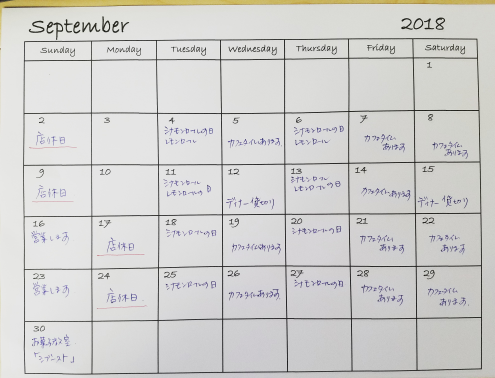 September 2018
Sunday Monday Tuesday Wednesday Thursday Friday Saturday
1
2 3 4 5 6 7 8
店休日
シナモンロールの日
レモンロール
カフェタイムあります
シナモンロールの日
レモンロール
カフェタイム
あります
カフェタイム
あります
9 10 11 12 13 14 15
店休日
シナモンロール
レモンロールの日
ディナー貸切り
シナモンロール
レモンロールの日
カフェタイムあります
ディナー貸切り
16 17 18 19 20 21 22
営業します
店休日
シナモンロールの日
カフェタイムあります
シナモンロールの日
カフェタイム
あります
カフェタイム
あります
23 24 25 26 27 28 29
営業します
店休日
シナモンロールの日
カフェタイムあります
シナモンロールの日
カフェタイム
あります
カフェタイム
あります
30
お菓子教室